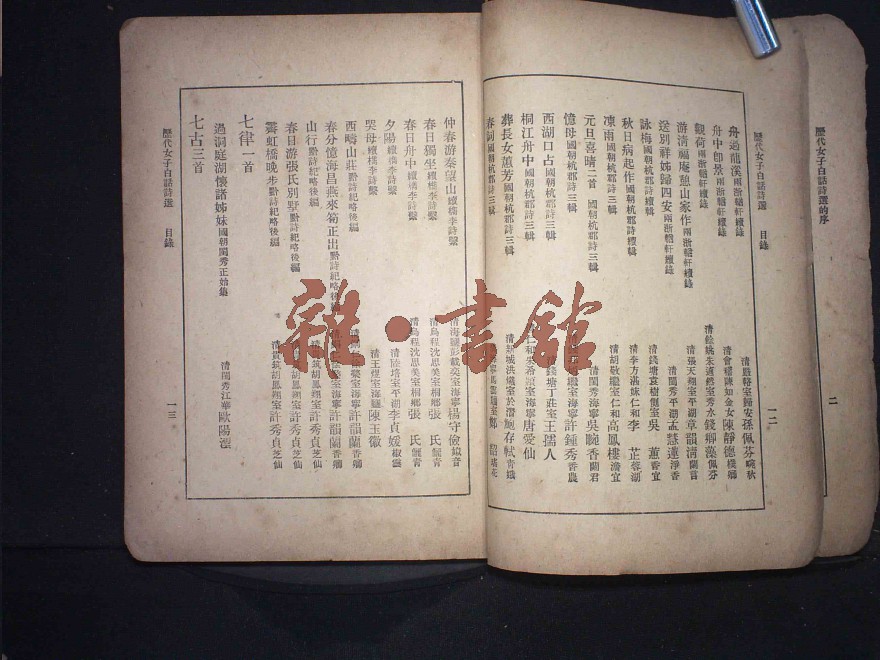 歷代女子白話詩選的序
二
歷代女子白話詩選 目錄
一二
舟過龍溪 兩浙輶軒續錄 清嚴輅室歸安孫佩芬
舟中即景 兩浙輶軒續錄 清會稽陳如金女陳靜德
觀荷 兩浙輶軒續錄 佩芬
游清福庵憩山家作 兩浙輶軒續錄 清張天翔室平湖章韻清 蘭言
送別祥姊歸四安 兩浙輶軒續錄 清閨秀平湖孟慧蓮 淨香
詠梅 國朝杭郡詩續輯 清錢塘袁樹側室吳 蕙 香宜
秋日病起作 國朝杭郡詩續輯 清李方湛妹仁和李 芷 蓉湖
凍雨 國朝杭郡詩三輯 清胡敬繼室仁和高鳳樓 澹宜
元旦喜晴二首 國朝杭郡詩三輯 清閨秀海寧吳畹香 蘭君
憶母 國朝杭郡詩三輯 繼室海寧許鍾秀 香農
西湖口占 國朝杭郡詩三輯 清錢塘丁 室王孺人
桐江舟中 國朝杭郡詩三輯 仁和 室海寧唐愛仙
葬長女蕙芳 國朝杭郡詩三輯 清新城洪 室於潛鮑存
春詞 國朝杭郡詩三輯
仲春游秦望山 續檇李詩繫 清海鹽彭載奕室海寧楊守儉
春日獨坐 續檇李詩繫 清烏程沈思美室桐鄉張 氏 儷青
春日舟中 續檇李詩繫 清烏程沈思美室桐鄉張 氏 儷青
夕陽 續檇李詩繫 清陸 室平湖李貞媛 淑雲
哭母 續檇李詩繫 清王 室海鹽陳玉徽
西疇山莊 黔詩紀略後編 室海寧許韻蘭 香卿
春分憶海昌燕來筍正出 黔詩紀略後編 室海寧許韻蘭 香卿
山行 黔詩紀略後編 清貴筑胡鳳翔室許秀貞 芝仙
春日游張氏別墅 黔詩紀略後編 清貴筑胡鳳翔室許秀貞 芝仙
霽虹橋晚步 黔詩紀略後編 清貴筑胡鳳翔室許秀貞 芝仙
七律一首
過洞庭湖懷諸姊妹 國朝閨秀正始集 清閨秀江華歐陽澧
七古三首
歷代女子白話詩選 目錄
一三
雜·書館